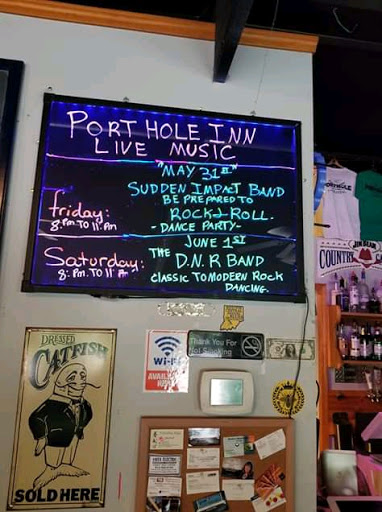 PORT HOLE INN
LIVE MUSIC
"MAY 31ST"
SUDDEN IMPACT BAND
BE PREPARED TO
friday: ROCK-N-ROLL.
8: P.M. TO 11: P.M - DANCE PARTY -
JUNE 1ST
Saturday: THE D.N.R BAND
8: P.M. TO 11: P.M CLASSIC TO MODERN ROCK
DANCING.
JIM BEAM
COUNTRY
DRESSED
CATFISH
SOLD HERE
Wi-Fi
AVAILABLE
HERE
Thank You For
Not Smoking